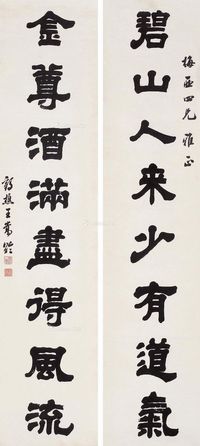 梅亟四兄雅正
碧山人来少有道氣
金尊酒滿盡得風流
王